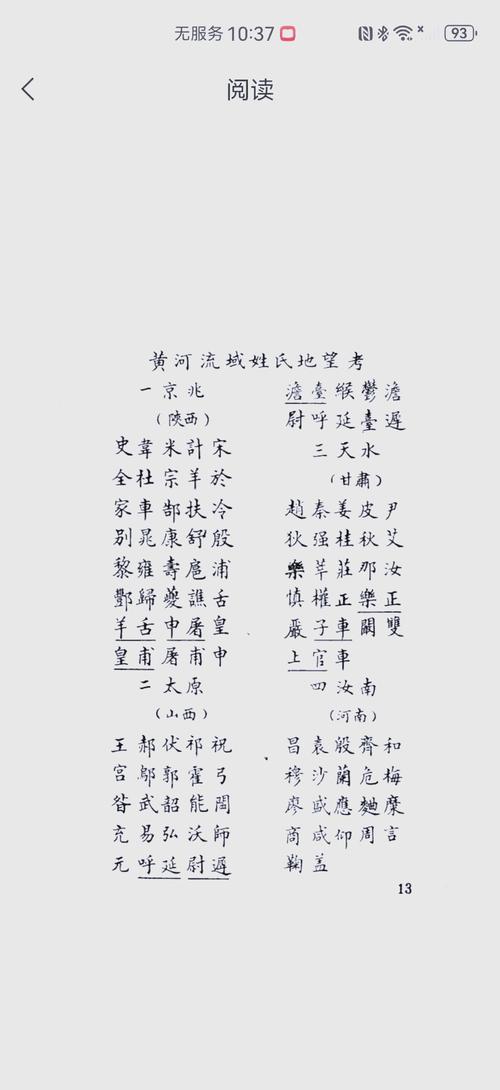 无服务 10:37 93
阅读
黄河流域姓氏地望考
一 京兆
（陝西）
史韋米計宋
全杜宗羊於
家車郜扶冷
别晁康舒殷
黎雍壽扈浦
酆歸夔譙舌
羊舌申屠皇
皇甫屠甫申
二 太原
（山西）
王郝伏祁祝
宫鄔郭霍弓
昝武韶能閻
充易弘沃師
元呼延尉遲
澹臺緱鬱澹
尉呼延臺遲
三 天水
（甘肅）
趙秦姜皮尹
狄强桂秋艾
樂芊莊那汝
慎權正樂正
嚴子車闞雙
上官車
四 汝南
（河南）
昌袁殷齊和
穆沙蘭危梅
廖盛應麯糜
商咸仰周言
鞠盖
13